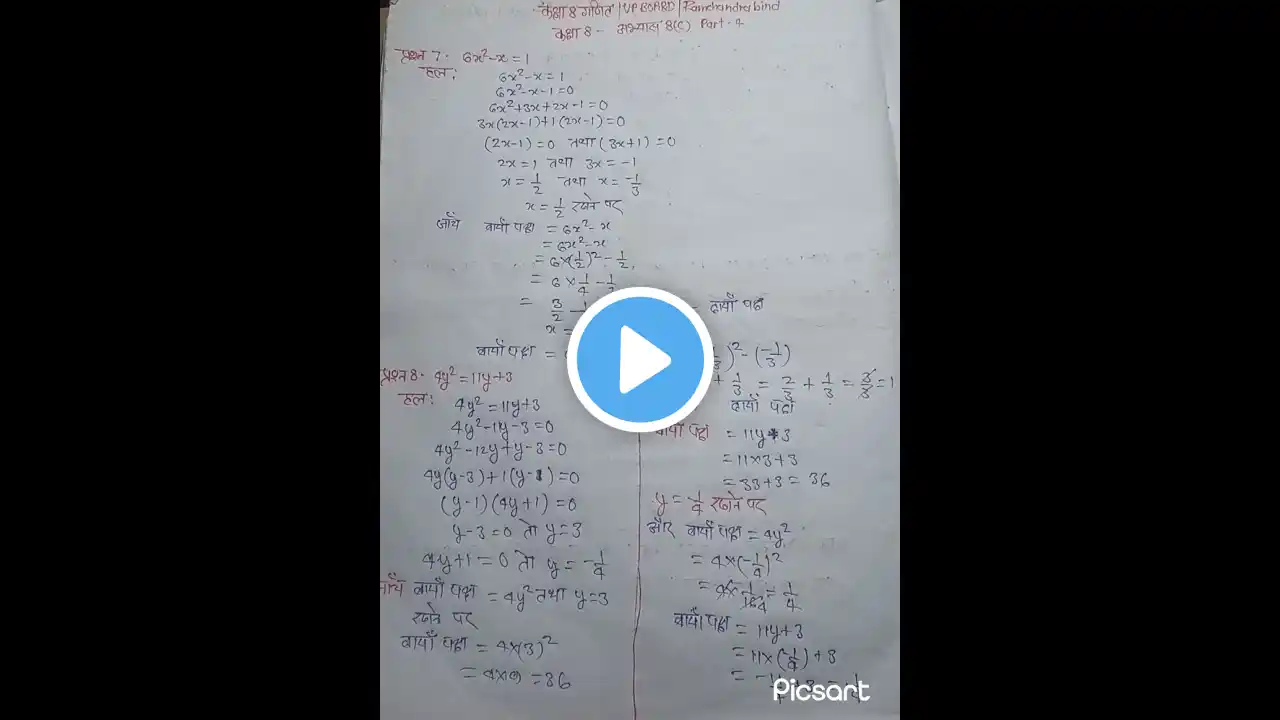 कक्षा 8 गणित | UP BOARD | Ramchandra bind
कक्षा 8 - अभ्यास 8(C) Part-2
प्रश्न 7. 6x²-x=1
हल:
6x²-x=1
6x²-x-1=0
6x²+3x+2x-1=0
3x(2x-1)+1(2x-1)=0
(2x-1)=0 तथा (3x+1)=0
2x=1 तथा 3x=-1
x=1/2 तथा x=-1/3
x=1/2 रखने पर
जाँच बायाँ पक्ष = 6x²-x
= 6x²-x
= 6×(1/2)²-1/2
= 6×1/4-1/2
= 3/2 -
दायाँ पक्ष
x =
बायाँ पक्ष =
)²-(-1/3)
+ 1/3 = 2/3 + 1/3 = 3/3 = 1
दायाँ पक्ष
प्रश्न 8. 4y²=11y+3
हल:
4y²=11y+3
4y²-11y-3=0
4y²-12y+y-3=0
4y(y-3)+1(y-1)=0
(y-1)(4y+1)=0
y-3=0 तो y=3
4y+1=0 तो y=-1/4
जाँच बायाँ पक्ष = 4y² तथा y=3
रखने पर
बायाँ पक्ष = 4×(3)²
= 4×9 = 36
पक्ष = 11y+3
= 11×3+3
= 33+3 = 36
y=-1/4 रखने पर
और बायाँ पक्ष = 4y²
= 4×(-1/4)²
= 4×1/16 = 1/4
4
पक्ष = 11y+3
= 11×(-1/4)+3
Picsart